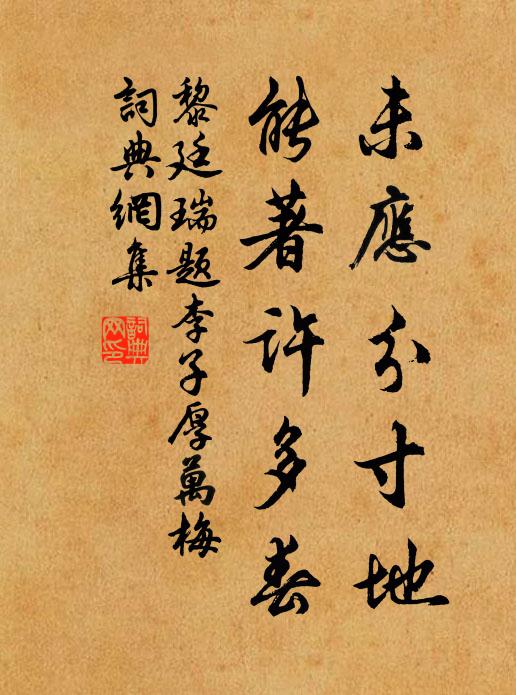 未應分寸地
能著許多春
黎廷瑞題李子厚萬梅
詞典網集
詞典网印